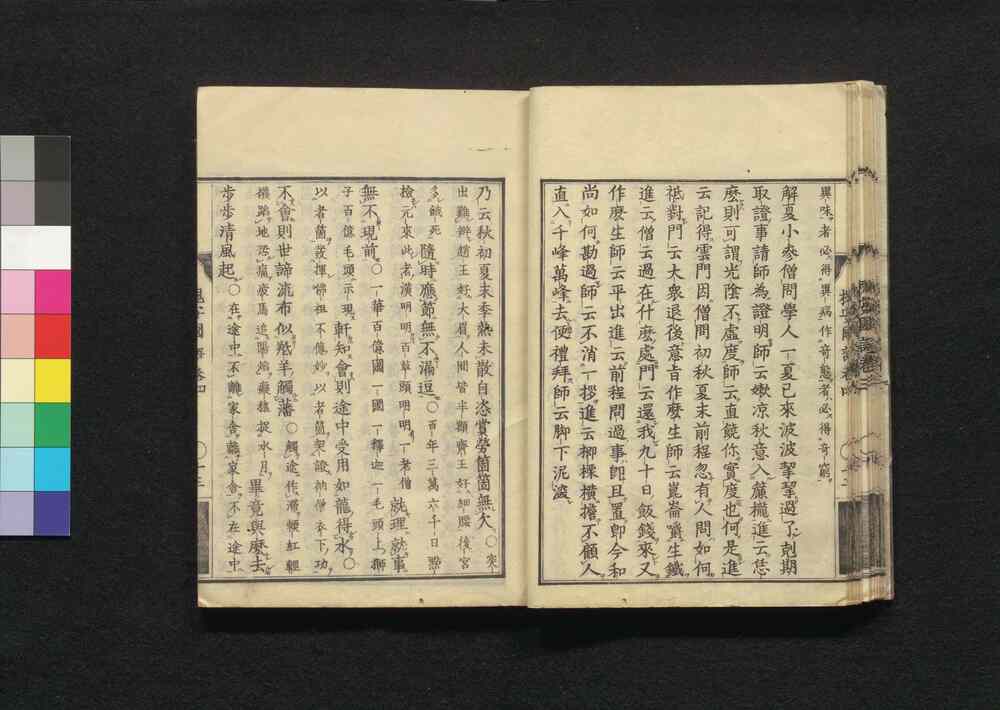 異味者必得異病作奇態者必得奇窮
解夏小參僧問學人一夏已來波波挈挈過了剋期
取證事請師為證明師云嫩凉秋意入簾櫳進云恁
麼則可謂光陰不虛度師云直饒你實度也何是進
云記得雲門因僧問初秋夏末前程忽有人問如何
祇對門云大衆退後意旨作麼生師云崑崙嚼生鐵
進云僧云過在什麼處門云還我九十日飯錢來又
作麼生師云平出進云前程問過事即且置即今和
尚如何勘過師云不消一拶進云楖𣗖橫擔不顧人
直入千峰萬峰去便禮拜師云脚下泥深
乃云秋初夏末季熱未散自恣賞勞箇箇無欠〇突
出難辨趙王好大眉人間皆半額齊王好細腰後宮
多餓死 隨時應節無不漏逗〇百年三萬六千日點
檢元來此者漢明明百草頭明明一老僧 就理就事
無不現前〇一華百億國一國一釋迦一毛頭上獅
子百億毛頭示現 軒知會則途中受用如龍得水〇
以者箇發揮佛祖不傳妙以者箇架證衲僧衣下功
不會則世諦流布似羝羊觸藩〇觸途作滯輭紅輕
襟蹈地恐 畢竟與麼去
步步清風起〇在途中不離家舍離家舍不在途中